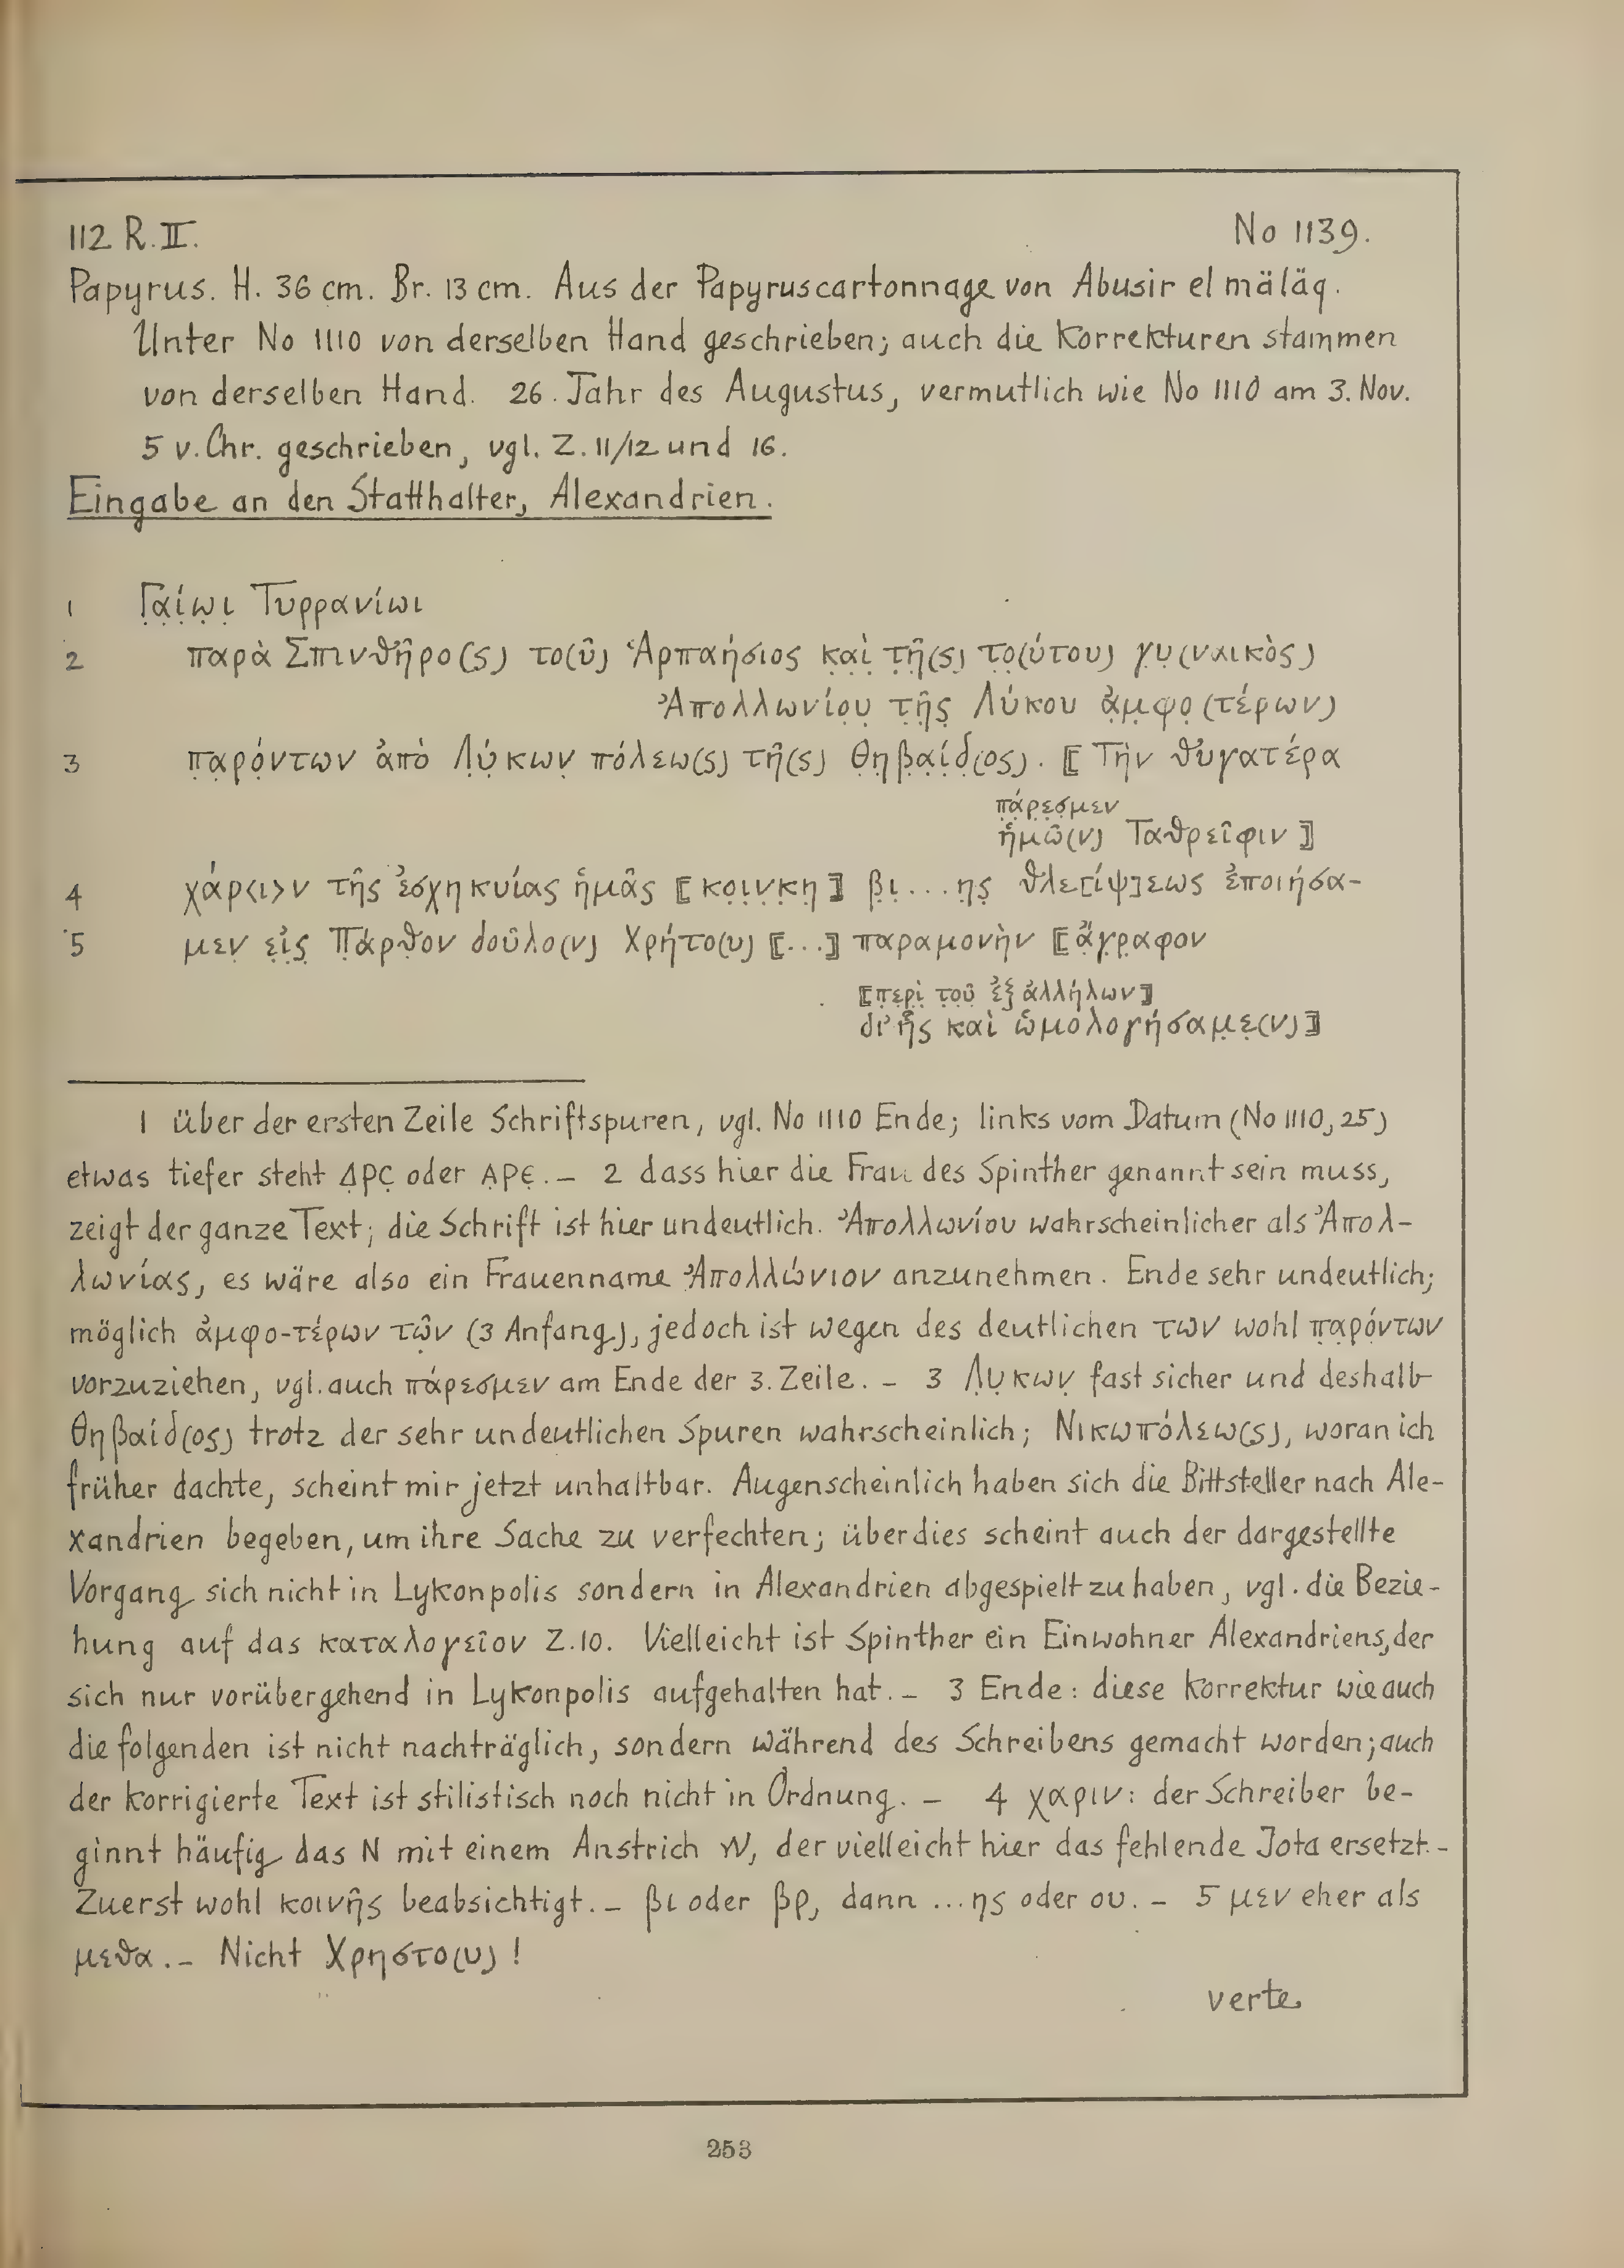 112 R. II. No 1139.
Papyrus. H. 36 cm. Br. 13 cm. Aus der Papyruscartonnage von Abusir el mäläq.
Unter No 1110 von derselben Hand geschrieben; auch die Korrekturen stammen
von derselben Hand. 26. Jahr des Augustus, vermutlich wie No 1110 am 3. Nov.
5 v. Chr. geschrieben, vgl. Z. 11/12 und 16.
Eingabe an den Statthalter, Alexandrien.
1 Γ̣α̣ί̣ω̣ι Τυρρανίωι
2 παρὰ Σπινθῆρο(ς) το(ῦ) Ἁρπαήσιος κ̣α̣ὶ̣ τ̣ῆ̣(ς) τ̣ο̣(ύτου) γ̣υ̣(ναικὸς)
Ἀπολλωνίο̣υ̣ τ̣ῆ̣ς̣ Λύκου ἀ̣μ̣φο̣(τέρων)
3 π̣α̣ρ̣ό̣ντων ἀπὸ Λ̣ύ̣κων̣ πόλεω(ς) τῆ(ς) Θ̣η̣β̣α̣ί̣δ̣(ος). ⟦Τὴν θυγατέρα
π̣ά̣ρ̣ε̣σ̣μεν
ἡμῶ(ν) Ταθρεῖφιν⟧
4 χάρ<ι>ν τῆς ἐσχηκυίας ἡμᾶς ⟦κ̣ο̣ι̣ν̣κ̣η̣⟧ β̣ι̣...η̣ς̣ θλε[ίψ]εως ἐποιήσα-
5 μεν̣ ε̣ἰ̣ς̣ Π̣ά̣ρ̣θ̣ον δοῦλο(ν) Χρήτο(υ) ⟦...⟧ παραμονὴν ⟦ἄ̣γ̣ρ̣αφον
⟦π̣ε̣ρ̣ὶ̣ τ̣ο̣ῦ̣ ἐ̣ξ̣ ἀλλήλων⟧
δι' ἧ̣ς καὶ ὡμολογήσαμ̣ε̣(ν)⟧
1 über der ersten Zeile Schriftspuren, vgl. No 1110 Ende; links vom Datum (No 1110, 25)
etwas tiefer steht Δ̣ΡϹ̣ oder Α̣ΡЄ̣. – 2 dass hier die Frau des Spinther genannt sein muss,
zeigt der ganze Text; die Schrift ist hier undeutlich. Ἀπολλωνίου wahrscheinlicher als Ἀπολ-
λωνίας, es wäre also ein Frauenname Ἀπολλώνιον anzunehmen. Ende sehr undeutlich;
möglich ἀμφο-τέρων τῶ̣ν (3 Anfang), jedoch ist wegen des deutlichen των wohl π̣α̣ρ̣ό̣ντων
vorzuziehen, vgl. auch πάρεσμεν am Ende der 3. Zeile. – 3 Λ̣ύ̣κων̣ fast sicher und deshalb
Θηβαίδ(ος) trotz der sehr undeutlichen Spuren wahrscheinlich; Νικωπόλεω(ς), woran ich
früher dachte, scheint mir jetzt unhaltbar. Augenscheinlich haben sich die Bittsteller nach Ale-
xandrien begeben, um ihre Sache zu verfechten; überdies scheint auch der dargestellte
Vorgang sich nicht in Lykonpolis sondern in Alexandrien abgespielt zu haben, vgl. die Bezie-
hung auf das καταλογεῖον Z. 10. Vielleicht ist Spinther ein Einwohner Alexandriens, der
sich nur vorübergehend in Lykonpolis aufgehalten hat. – 3 Ende: diese Korrektur wie auch
die folgenden ist nicht nachträglich, sondern während des Schreibens gemacht worden; auch
der korrigierte Text ist stilistisch noch nicht in Ordnung. – 4 χαριν: der Schreiber be-
ginnt häufig das N mit einem Anstrich W, der vielleicht hier das fehlende Jota ersetzt. –
Zuerst wohl κοινῆς beabsichtigt. – βι oder βρ, dann ...ης oder ου. – 5 μεν eher als
μεθα. – Nicht Χρηστο(υ)!
verte
253